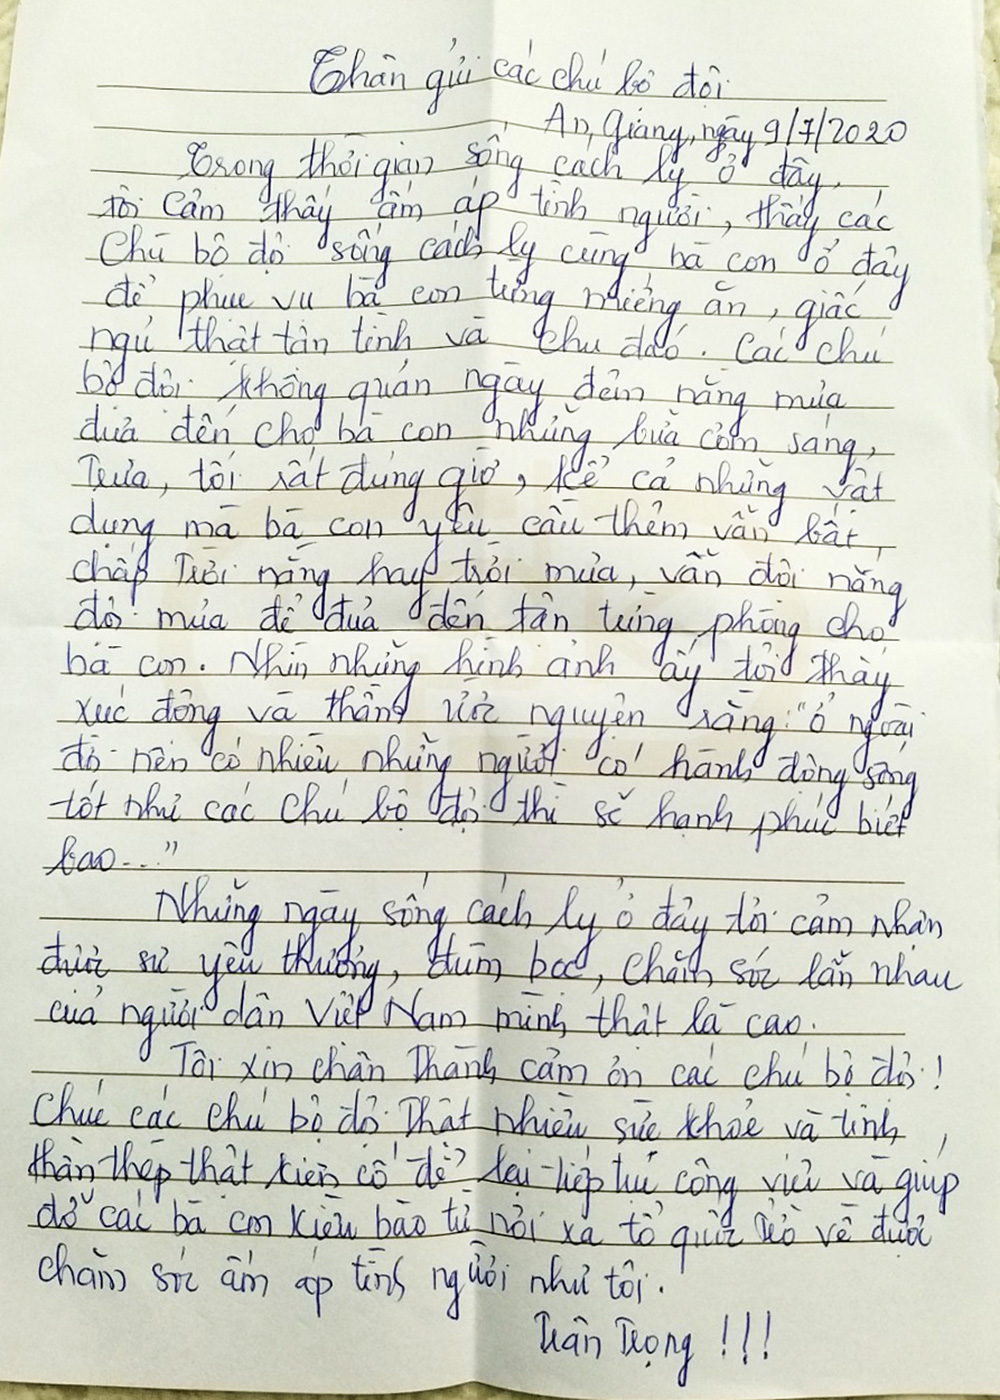 Thân gửi các chú bộ đội
An Giang, ngày 9/7/2020
Trong thời gian sống cách ly ở đây,
tôi cảm thấy ấm áp tình người, thấy các
Chú bộ đội sống cách ly cùng bà con ở đây
để phục vụ bà con từng miếng ăn, giấc
ngủ thật tận tình và chu đáo. Các chú
bộ đội không quản ngày đêm nắng mưa
đưa đến cho bà con những bữa cơm sáng,
Trưa, tối rất đúng giờ, kể cả những vật
dụng mà bà con yêu cầu thêm vẫn bất
chấp Trời nắng hay trời mưa, vẫn đội nắng
đội mưa để đưa đến tận từng phòng cho
bà con. Nhìn những hình ảnh ấy tôi thấy
xúc động và thầm ước nguyện rằng: "ở ngoài
đó nên có nhiều những người có hành động sống
tốt như các Chú bộ đội thì sẽ hạnh phúc biết
bao..."
Những ngày sống cách ly ở đây tôi cảm nhận
được sự yêu thương, đùm bọc, chăm sóc lẫn nhau
của người dân Việt Nam mình thật là cao.
Tôi xin chân Thành cảm ơn các chú bộ đội!
Chúc các chú bộ đội Thật nhiều sức khoẻ và tinh
thần thép thật kiên cố để lại tiếp tục công việc và giúp
đỡ các bà con kiều bào từ nơi xa tổ quốc trở về được
chăm sóc ấm áp tình người như tôi.
Trân Trọng !!!